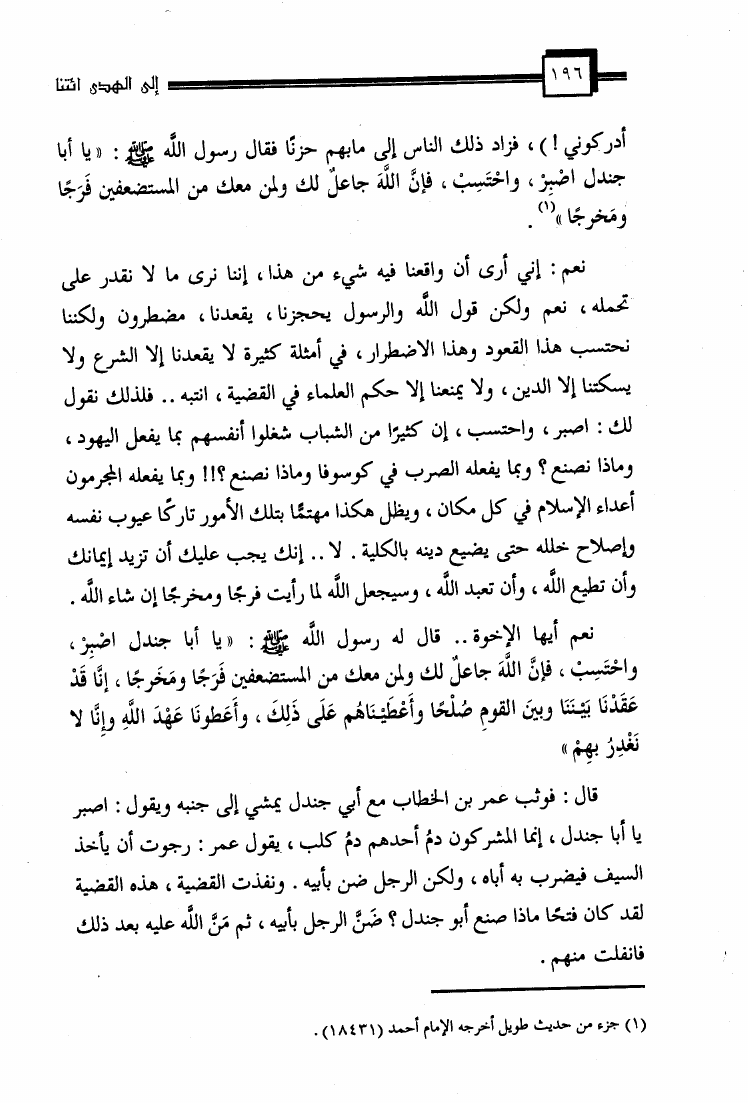 ١٩٦
إلى الهدى ائتنا
أدركوني !) ، فزاد ذلك الناس إلى مابهم حزنًا فقال رسول اللَّه ﷺ : « يا أبا
جندل اصْبِرْ ، واحْتَسِبْ ، فإنَّ اللَّهَ جاعلٌ لك ولمن معك من المستضعفين فَرَجًا
ومَخرجًا »(١) .
نعم : إني أرى أن واقعنا فيه شيء من هذا ، إننا نرى ما لا نقدر على
تحمله ، نعم ولكن قول اللَّه والرسول يحجزنا ، يقعدنا ، مضطرون ولكننا
نحتسب هذا القعود وهذا الاضطرار ، في أمثلة كثيرة لا يقعدنا إلا الشرع ولا
يسكتنا إلا الدين ، ولا يمنعنا إلا حكم العلماء في القضية ، انتبه .. فلذلك نقول
لك : اصبر ، واحتسب ، إن كثيرًا من الشباب شغلوا أنفسهم بما يفعل اليهود ،
وماذا نصنع ؟ وبما يفعله الصرب في كوسوفا وماذا نصنع ؟!! وبما يفعله المجرمون
أعداء الإسلام في كل مكان ، ويظل هكذا مهتمًّا بتلك الأمور تاركًا عيوب نفسه
وإصلاح خلله حتى يضيع دينه بالكلية . لا .. إنك يجب عليك أن تزيد إيمانك
وأن تطيع اللَّه ، وأن تعبد اللَّه ، وسيجعل اللَّه لما رأيت فرجًا ومخرجًا إن شاء اللَّه .
نعم أيها الإخوة .. قال له رسول اللَّه ﷺ : « يا أبا جندل اصْبِرْ ،
واحْتَسِبْ ، فإنَّ اللَّهَ جاعلٌ لك ولمن معك من المستضعفين فَرَجًا ومَخَرجًا ، إنَّا قَدْ
عَقَدْنَا بَيْنَنَا وبينَ القومِ صُلْحًا وأَعْطَيْنَاهُم عَلَى ذَلِكَ ، وأَعطونَا عَهْدَ اللَّهِ وإنَّا لا
نَغْدِرُ بِهِمْ »
قال : فوثب عمر بن الخطاب مع أبي جندل يمشي إلى جنبه ويقول : اصبر
يا أبا جندل ، إنما المشركون دمُ أحدهم دمُ كلب ، يقول عمر : رجوت أن يأخذ
السيف فيضرب به أباه ، ولكن الرجل ضن بأبيه . ونفذت القضية ، هذه القضية
لقد كان فتحًا ماذا صنع أبو جندل ؟ ضَنَّ الرجل بأبيه ، ثم مَنَّ اللَّه عليه بعد ذلك
فانفلت منهم .
(١) جزء من حديث طويل أخرجه الإمام أحمد (١٨٤٣١) .